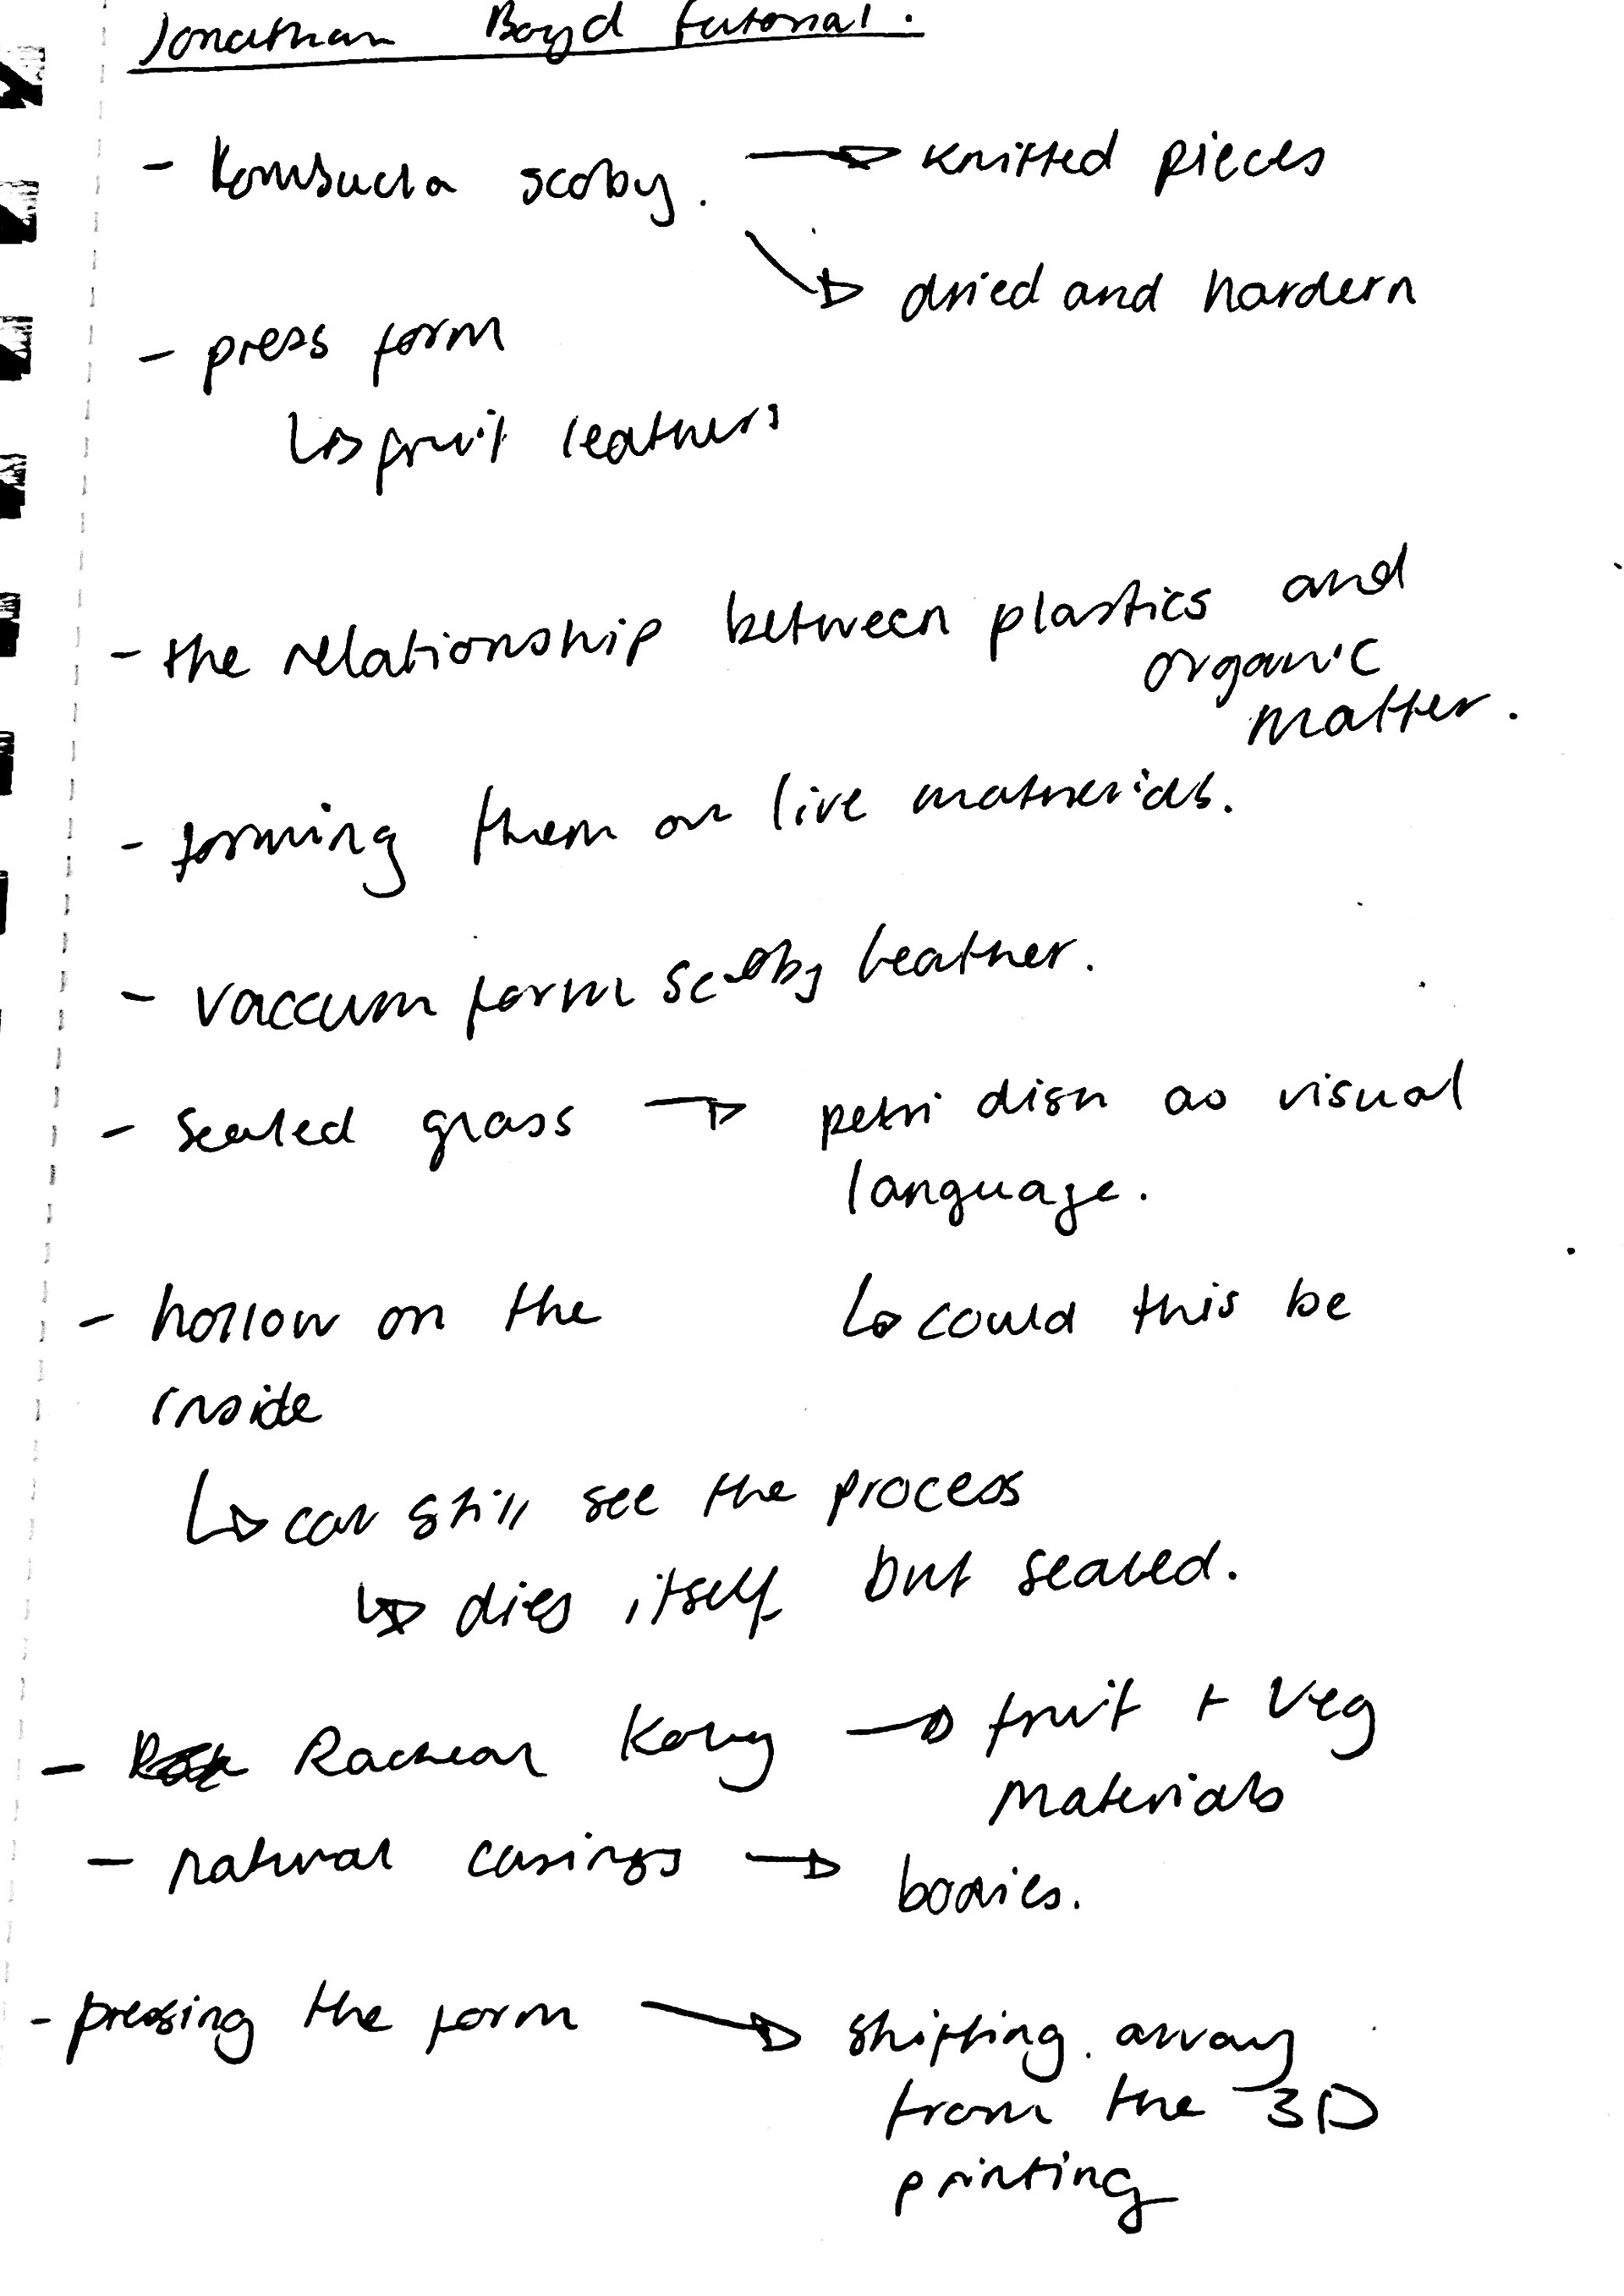 Jonathan Boyd tutorial.
- Kombucha scoby. → knitted pieces
→ dried and hardern
- press form
↳ fruit leathers
- the relationship between plastics and
organic
matter.
- forming them on live materials.
- vaccum form scoby leather.
- sealed grass → petri dish as visual
language.
- hollow on the
↳ could this be
inside
↳ can still see the process
↳ dies itself but sealed.
- → fruit + veg
materials
- natural casings → bodies.
- pressing the form → shifting away
from the 3D
printing